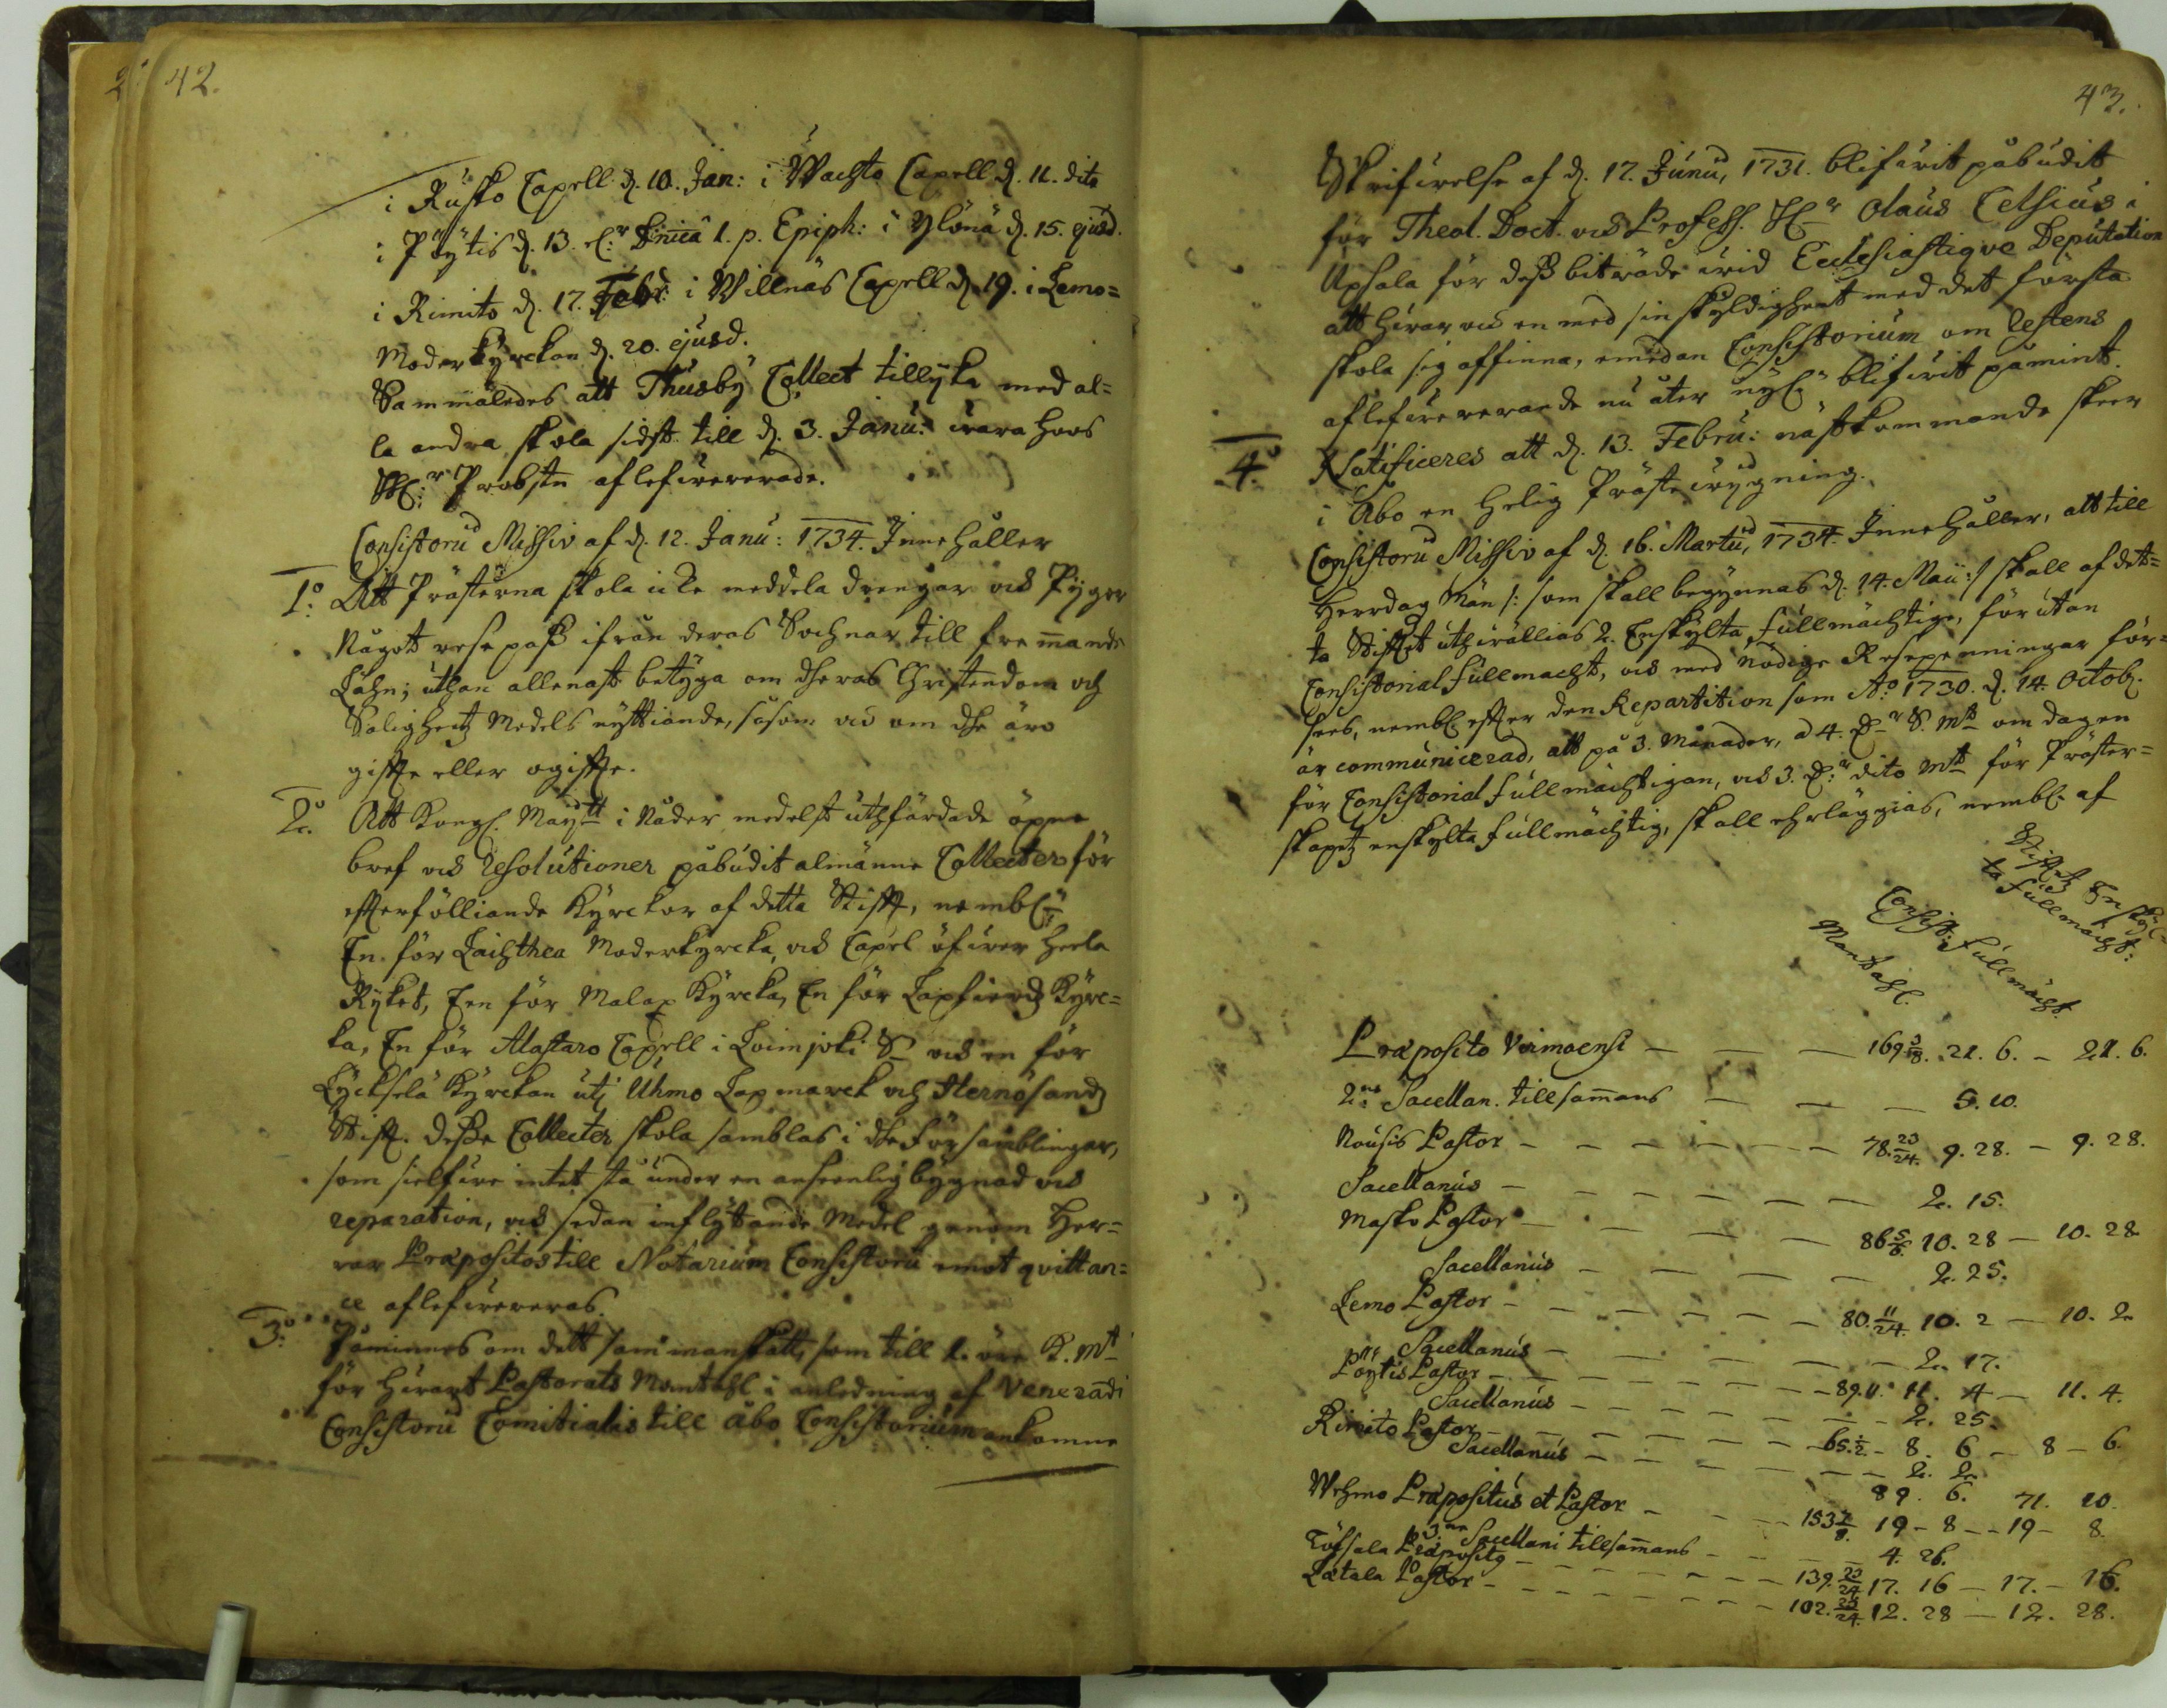 42.
i Rusko Capell d. 10. Jan: i Wachto Capell d. 11. dito
i Pöytis d. 13. el:r Dnica 1. p. Epiph: i Ylänä d. 15. ejusd.
i Rimito d. 17. Febr: i Willnäs Capell d. 19. i Lemo=
Moderkyrckan d. 20. ejusd.
Sammaledes att Thusby Collect tillijka med al=
la andra skola sidst till d. 3. Janu: wara hoos
H:r Probsten aflefwererade.
Consistorii Missiv af d. 12. Janu: 1734. Innehåller
1:o Att Prästerna skola icke meddela drengar och Pijgor
Något resepass ifrån deras Sochnar till fremmande
Lähn; uthan allenast betyga om dheras Christendom och
Salighetz Medels nyttiande, såsom och om dhe äro
giffte eller ogiffte.
2:o Att Kongl. Maij:tt i Nåder medelst uthfärdade öpne
bref och resolutioner påbudit almänne Collecter för
effterfölliande Kyrckor af detta Stifft, nembl:n
En för Laihthea Moderkyrcka, och Capel öfwer heela
Ryket, Een för Malax Kyrcka, En för Lapfierdz Kyrc=
ka, En för Alastaro Capell i Loimjoki S:n och en för
Lycksela Kyrckan uti Uhmo Lapmarck och Hernösandz
Stifft. Desse Collecter skola samblas i dhe Församblingar,
som sielfwe intet stå under en ansenlig bygnad och
reparation, och sedan inflytande Medel genom Her=
rar Præpositos till Notarium Consistorii emot qvittan=
ce aflefwereras.
3:o Påminnes om dett sammanskått, som till 1. öre K. m:t
för hwart Pastorats Mantahl i anledning af Venerandi
Consistorii Comitialis till Åbo Consistorium ankomne
43.
Skrifwelse af d. 17. Junii, 1731. blifwit påbudit
för Theol. Doct. och Profess. H:r Olaus Celsius i
Upsala för dess biträde wid Ecclesiastique Deputation
att hwar och en med sin skyldighet med det första
skola sig affinna, emedan Consistorium om Restens
aflefwererande nu åter nyl:n blifwit påmint.
4:o Notificeres att d. 13. Febru: nästkommande skeer
i Åbo en helig Prästewygning.
Consistorii Missiv af d. 16. Martii, 1734. Innehåller, att till
Herredag Män /: som skall begynnas d. 14. Maii :/ skall af det=
ta Stifftet uthwällias 2. Enskylta fullmächtige, förutan
Consistorial fullmacht, och med nödige Resepenningar för=
sees, nembl. effter den Repartition som A:o 1730. d. 14. Octob.
är communicerad, att på 3. Månader, à 4. D:r S. m:t om dagen
för Consistorial fullmächtigan, och 3. D:r dito m:t för Präster=
skapetz enskylta fullmächtig, skall ehrläggias, nembl. af
Stifftetz Enskyl=
ta fullmächt:
Consist: fullmächt.
Mantahl.
Præposito Virmoensi — — — 169 3/8. 21. 6. — 21. 6.
2:ne Sacellan. tillsammans — — — 5. 10.
Nousis Pastor — — — — — 78. 23/24. 9. 28. — 9. 28.
Sacellanus — — — — — 2. 15.
Masko Pastor — — — — 86 5/6. 10. 28 — 10. 28
Sacellanus — — — — 2. 25.
Lemo Pastor — — — — — 80. 11/24. 10. 2 — 10. 2
Sacellanus — — — — — 2. 17.
Pöytis Pastor — — — — — 89. 11. 4 — 11. 4.
Sacellanus — — — — — 2. 25.
Rimito Pastor — — — — — 65. 1/2 — 8. 6 — 8 — 6.
Sacellanus — — — — — 2. 2
89. 6. 71. 10.
Wehmo Præpositus et Pastor — — — 153 7/8. 19 — 8 — 19 — 8.
3:ne Sacellani tillsammans — — — 4. 26.
Töfsala Præposito — — — — — 139. 23/24 17. 16 — 17. — 16.
Letala Pastor — — — — — 102. 23/24. 12. 28 — 12. 28.